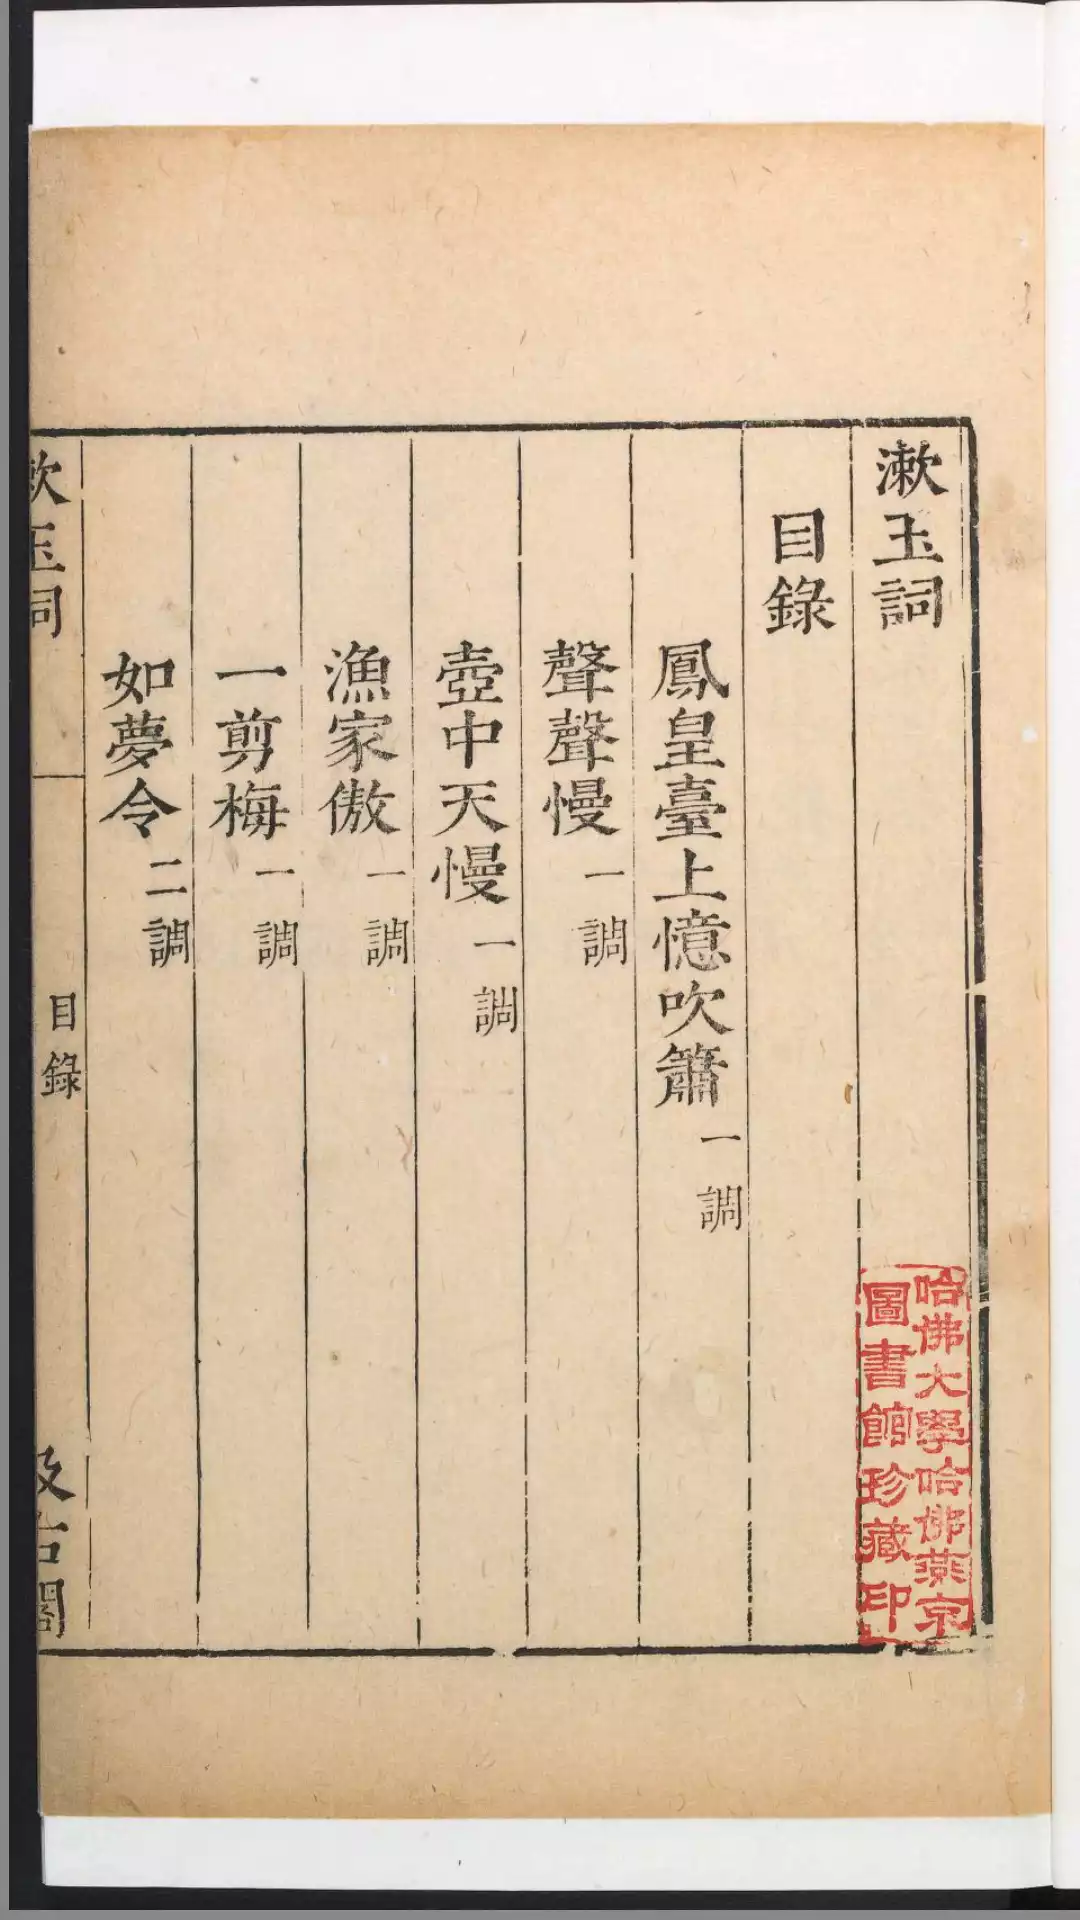 漱玉詞
目錄
鳳皇臺上憶吹簫一調
聲聲慢一調
壺中天慢一調
漁家傲一調
一剪梅一調
如夢令二調
漱玉詞
目錄
汲古閣
哈佛大學哈佛燕京
圖書館珍藏印